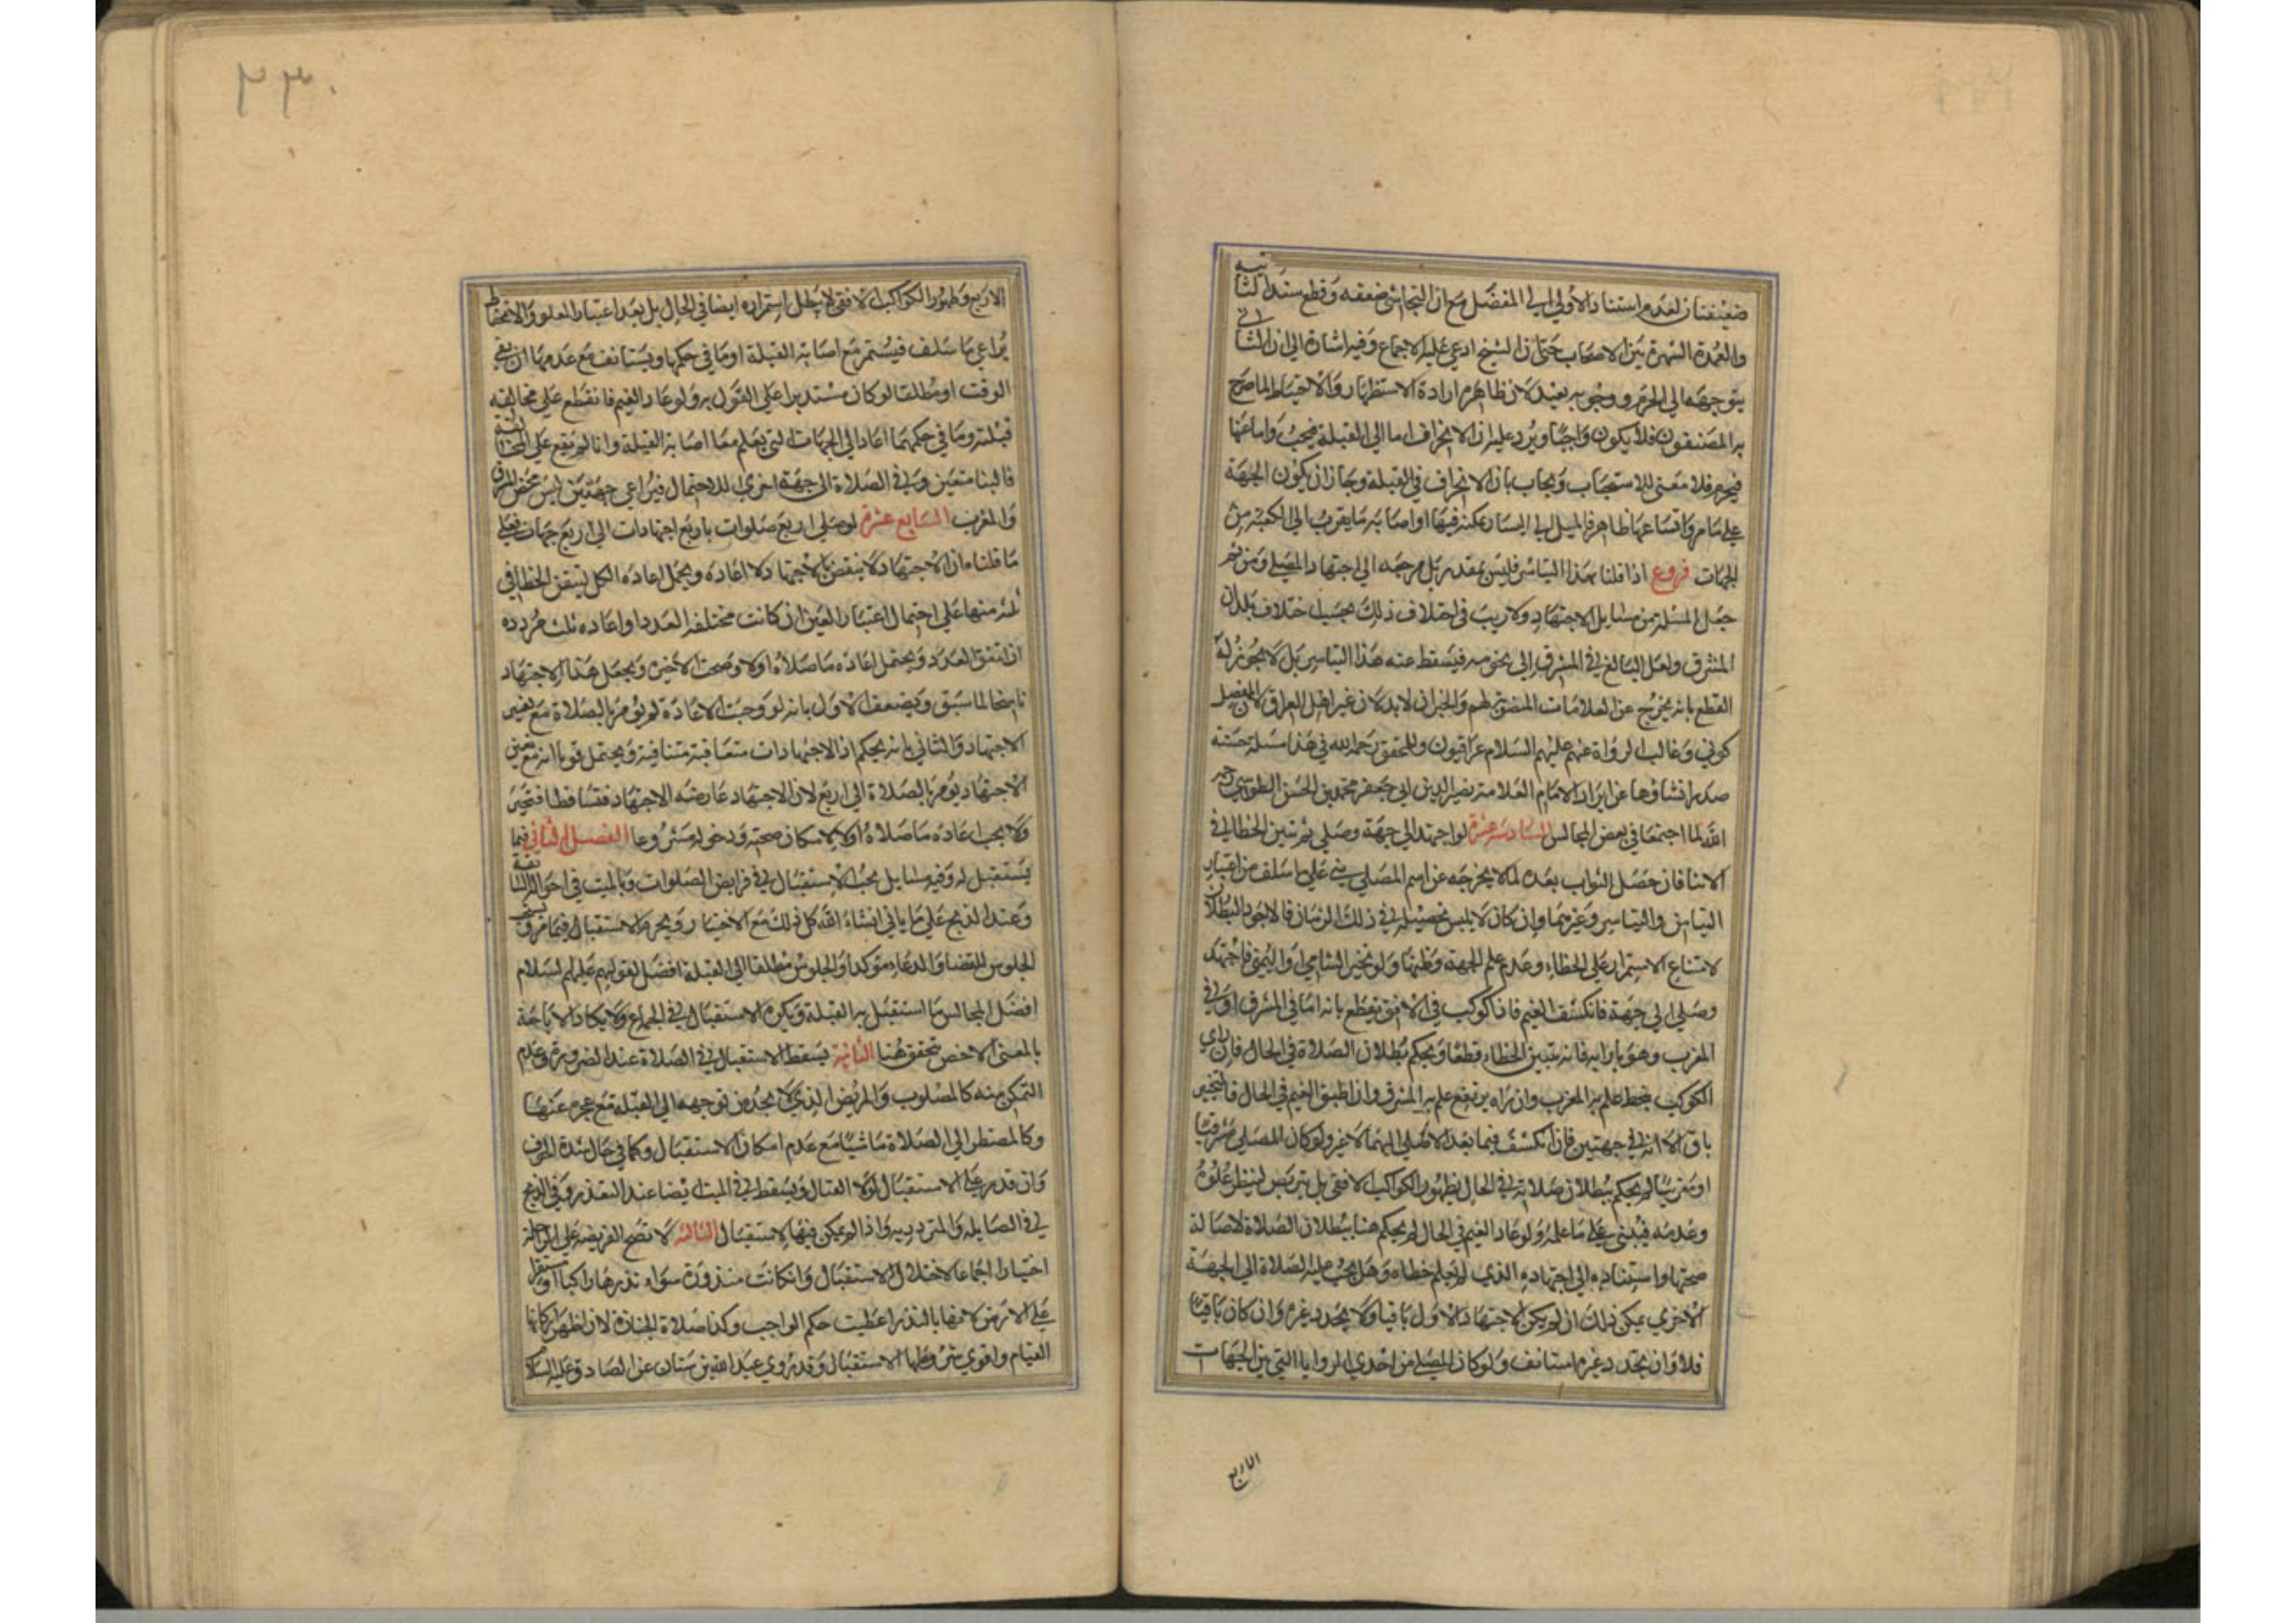 ضعيفتان لعدم استناد الاولي الي المفضل مع ان النجاشي ضعفه وقطع سند الثانيه
والعمدة الشهرة بين الاصحاب حتي ان الشيخ ادعي عليه الاجماع وفيه اشارة الي ان الثاني
يتوجه الي الحرم ووجوبه بعيد لان ظاهرهم ارادة الاستظهار والاحتياط لما صرح
به المصنفون فلا يكون واجبا ويرد عليه ان الانحراف اما الي القبلة فيجب واما عنها
فيحرم فلا معني للاستحباب ويجاب بان الانحراف في القبلة وجاز ان يكون الجهة
علي ما مر واتساعها ظاهر فالميل الي اليسار عكنه فيها او اصابته ما يقرب الي الكعبة من
الجهات فروع اذا قلنا بهذا التياسر فليس بمقدر بل مرجعه الي اجتهاد المصلي ومن ثم
جعل المسئلة من مسايل الاجتهاد ولا ريب في اختلاف ذلك بحسب اختلاف بلدان
المشرق ولعل البالغ في المشرق الي نحو مر فيسقط عنه هذا التياسر بل لا يجوز له
القطع بانه يخرج عن العلامات المنصوبة لهم والخبران لا يدلان غير اهل العراق لان المفضل
كوفي وغالب الرواة عنهم عليهم السلام عراقيون وللمحقق رحمه الله في هذا مسئلة حسنة
صدر انشاؤها عن ايراد الامام العلامة نصير الدين ابي جعفر محمد بن الحسن الطوسي رحمه
الله لما اجتمعا في بعض المجالس السادسة عشرة لو اجتهد الي جهة وصلي ثم تبين الخطا في
الاثنا فان حصل الثواب بعده لما لا يخرجه عن اسم المصلي بني علي ما سلف من اعتبار
التيامن والتياسر وغيرهما وان كان لا يلبس تحصيله في ذلك الزمان فالاجود البطلان
لامتناع الاستمرار علي الخطاء وعدم علم الجهة وظنها ولو تحير الشامي او اليمني فاجتهد
وصلي الي جهة فانكشف الغيم فاذا كوكب في الافق يقطع بانه اما في المشرق او في
المغرب وهو بازايه فانه يتبين الخطاء قطعا ويحكم بطلان الصلاة في الحال فان راي
الكوكب ينحط علم به المغرب وان راه يرتفع علم به المشرق وان اطبق الغيم في الحال فالتحير
باق الا انه في جهتين فان انكشف فيما بعد والا صلي اليهما لا غير ولو كان المصلي مشرقيا
او مغربيا لم يحكم ببطلان صلاته في الحال بظهور الكواكب الافقي بل يتربص لينظر علوه
وعدمه فيبني علي ما علمه ولو عاد الغيم في الحال لم يحكم هنا ببطلان الصلاة لاصالة
صحتها واستناده الي اجتهاده الذي لم يعلم خطاه وهل يجب عليه الصلاة الي الجهة
الاخري يمكن ذلك ان لم يكن الاجتهاد الاول باقيا ولا يجدد غيره وان كان باقيا
فلا وان تجدد غيره استانف ولو كان المصلي من احدي الزوايا التي بين الجهات
الاربع
٢٣٠
الاربع وظهور الكواكب الافقي لا يحلل استمراره ايضا في الحال بل بعد اعتبار العلو والانحطاط
يراعي ما سلف فيستمر مع اصابة القبلة او ما في حكمها ويستانف مع عدمها ان بقي
الوقت او مطلقا لو كان مستدبرا علي القول به ولو عاد الغيم فانقطع علي مخالفه
قبلته وما في حكمهما اعاد الي الجهات التي يعلم معها اصابة القبلة وان لم يقع علي المخالفة
فالبنا متعين وفي الصلاة الي جهة اخري للاحتمال فيراعي جهتين ليس محض المشرق
والمغرب السابع عشرة لو صلي اربع صلوات باربع اجتهادات الي اربع جهات فعلي
ما قلناه ان الاجتهاد لا ينقض بالاجتهاد لا اعاده ويحتمل اعاده الكل لتيقن الخطا في
ثلثه منها علي احتمال اعتبار العين ان كانت مختلفه العدد او اعاده ثلث مردده
ان اتفق العدد ويحتمل اعاده ما صلاه اولا وصحت الاخيره ويجعل هذا الاجتهاد
ناسخا لما سبق ويضعف الاول بانه لو وجبت الاعادة لم يؤمر بالصلاة مع تغير
الاجتهاد والثاني بانه يحكم اذ الاجتهادات متعاقبة متنافية ويحتمل قويا انه مع تغير
الاجتهاد يؤمر بالصلاة الي اربع لان الاجتهاد عارضه الاجتهاد فتساقطا فتحير
ولا يجب اعاده ما صلاه اولا لامكان صحته ودخوله مشروعا الفصل الثاني فيما
يستقبل له وفيه مسايل يجب الاستقبال في فرايض الصلوات وبالميت في احواله السالفة
وعند الذبح علي ما ياتي انشاء الله كل ذلك مع الاختيار ويحرم الاستقبال فيما مر ويستحب
الجلوس للقضا والدعاء موكدا والجلوس مطلقا الي القبلة افضل لقولهم عليهم السلام
افضل المجالس ما استقبل به القبلة ويكره الاستقبال في الجماع ولا يكاد الاباحة
بالمعني الاخص تحقق هنا الثانية يسقط الاستقبال في الصلاة عند الضرورة وعدم
التمكن منه كالمصلوب والمريض الذي لا يجد من توجهه الي القبلة مع عجزه عنها
وكالمضطر الي الصلاة ماشيا مع عدم امكان الاستقبال وكما في حال شدة الخوف
وان قدر علي الاستقبال لولا القتال ويسقط في الميت ايضا عند التعذر وفي الذبح
في الصايله والمترديه واذا لم يمكن فيها الاستقبال الثالثه لا تصح الفريضة علي الراحلة
اختيارا اجماعا لاختلال الاستقبال وان كانت منذورة سواء نذرها راكبا او مستقرا
علي الارض لانها بالنذر اعطيت حكم الواجب وكذا صلاة الجنازة لان اظهر اركانها
القيام واقوي شروطها الاستقبال وقد روي عبد الله بن سنان عن الصادق عليه السلام